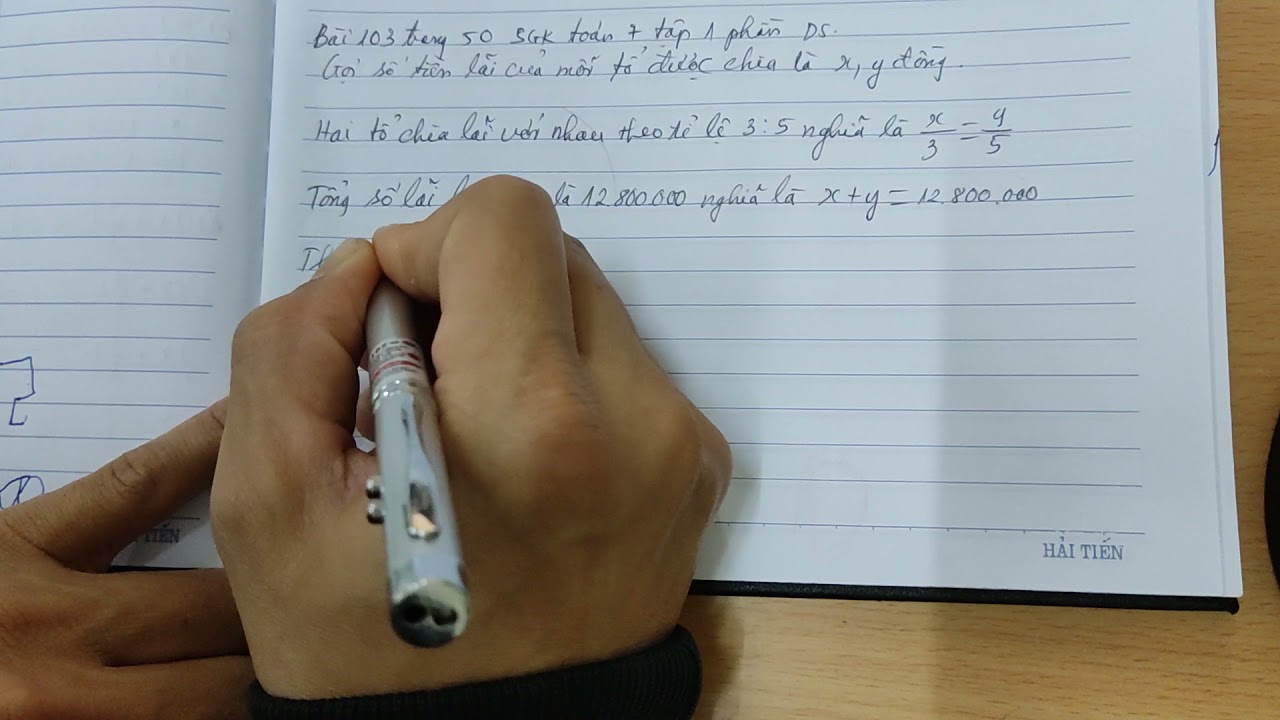 Bài 103 trang 50 SGK toán 7 tập 1 phần DS.
Gọi số tiền lãi của mỗi tổ được chia là x, y đồng.
Hai tổ chia lãi với nhau theo tỉ lệ 3:5 nghĩa là x/3 = y/5
Tổng số lãi là 12800000 nghĩa là x+y=12.800.000
HẢI TIẾN
TIẾN